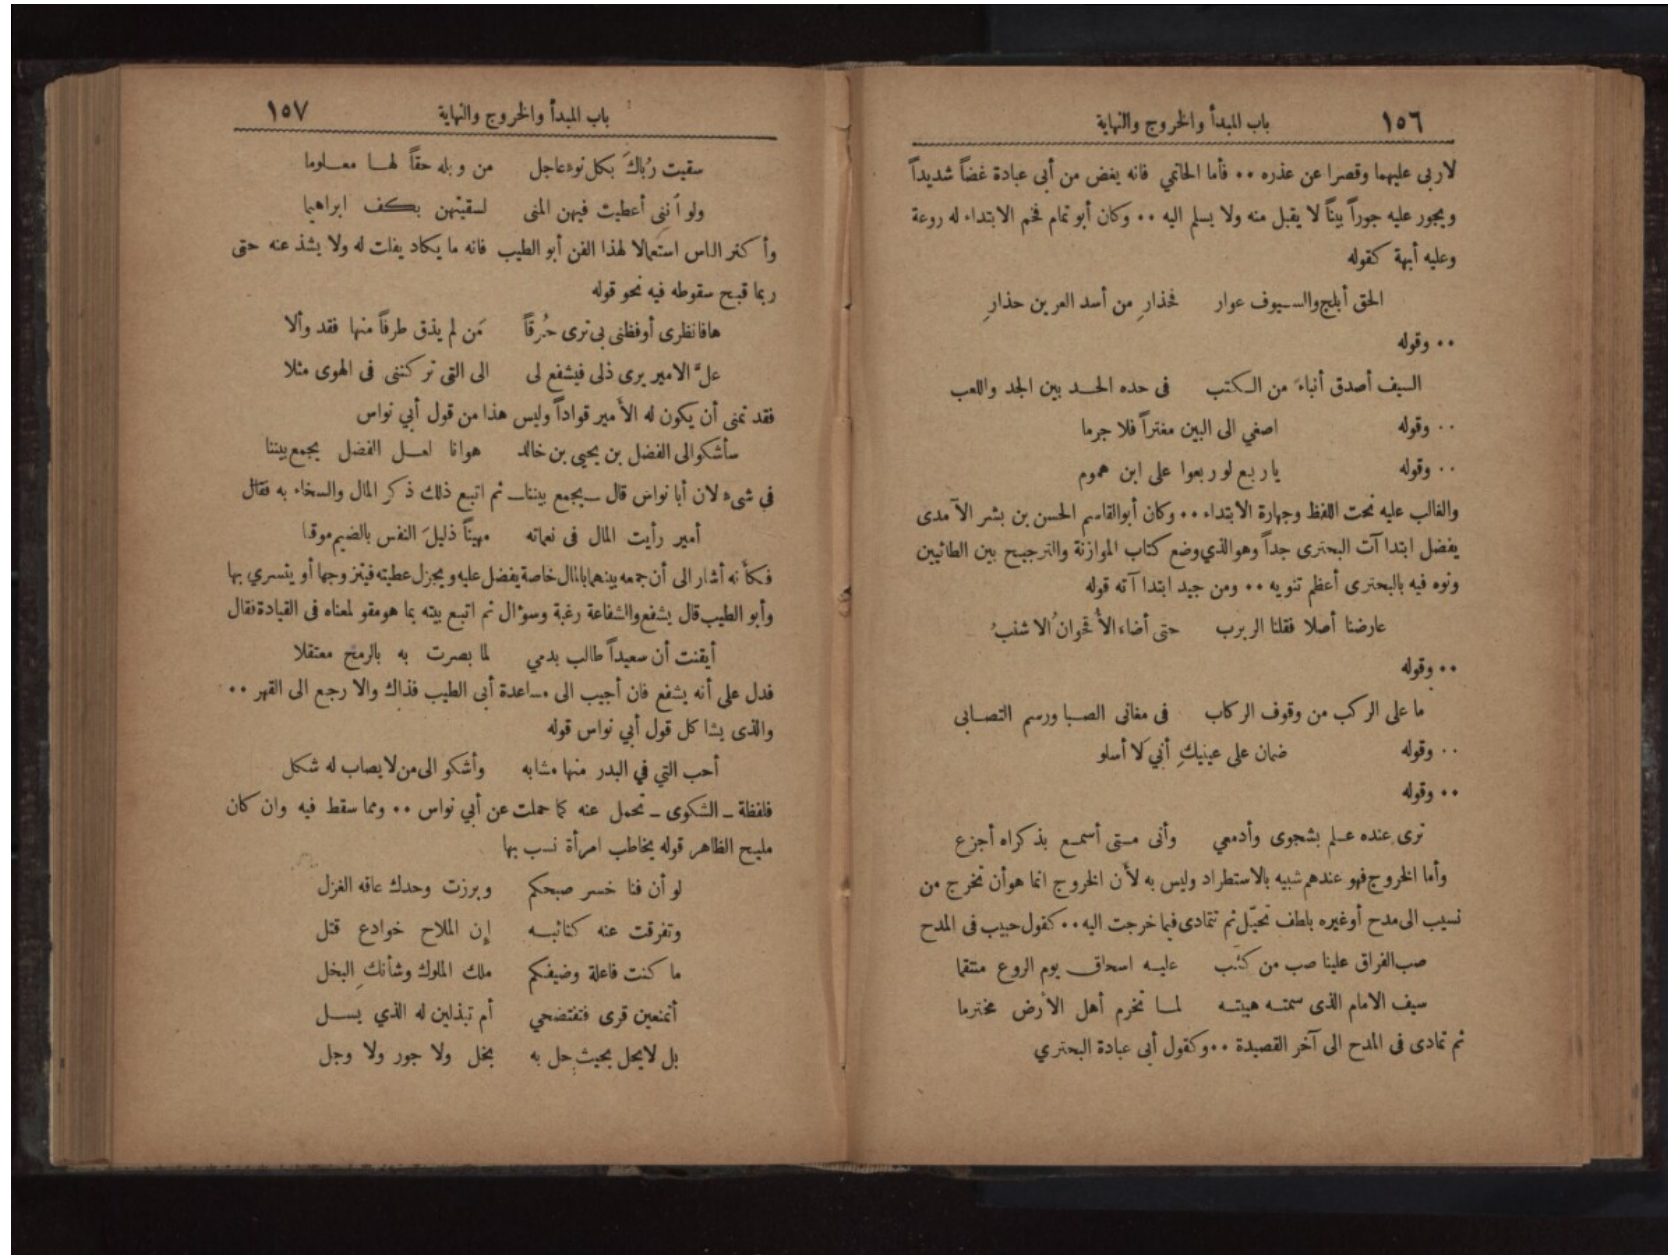 ١٥٦ باب المبدأ والخروج والنهاية
لاربى عليهما وقصرا عن عذره ٠٠ فأما الحاتمي فانه يغض من أبى عبادة غضاً شديداً
ويجور عليه جوراً بيناً لا يقبل منه ولا يسلم اليه ٠٠ وكان أبو تمام فخم الابتداء له روعة
وعليه أبهة كقوله
الحق أبلج والسيوف عوار فحذارِ من أسد العرين حذارِ
٠٠ وقوله
السيف أصدق أنباءَ من الكتب فى حده الحد بين الجد واللعب
٠٠ وقوله اصغي الى البين مغتراً فلا جرما
٠٠ وقوله يا ربع لو ربعوا على ابن هموم
والغالب عليه نحت اللفظ وجهارة الابتداء ٠٠ وكان أبوالقاسم الحسن بن بشر الآمدى
يفضل ابتدا آت البحترى جداً وهوالذي وضع كتاب الموازنة والترجيح بين الطائيين
ونوه فيه بالبحترى أعظم تنويه ٠٠ ومن جيد ابتدا آته قوله
عارضنا أصلا فقلنا الربرب حتى أضاء الأُقحوانُ الاشنبُ
٠٠ وقوله
ما على الركب من وقوف الركاب فى مغانى الصبا ورسم التصابى
٠٠ وقوله ضمان على عينيكِ أنى لا أسلو
٠٠ وقوله
ترى عنده علم بشجوى وأدمعي وأنى متى أسمع بذكراه أجزع
وأما الخروج فهو عندهم شبيه بالاستطراد وليس به لأن الخروج انما هوأن تخرج من
نسيب الى مدح أوغيره بلطف تحيّل ثم تتمادى فيما خرجت اليه ٠٠ كقول حبيب فى المدح
صب الفراق علينا صب من كثب عليه اسحاق يوم الروع منتقما
سيف الامام الذى سمته هيبته لما تخرم أهل الارض مخترما
ثم تمادى فى المدح الى آخر القصيدة ٠٠ وكقول أبى عبادة البحتري
باب المبدأ والخروج والنهاية ١٥٧
سقيت رُباكَ بكل نوءعاجل من وبله حقاً لها معلوما
ولو أننى أعطيت فيهن المنى لسقيتهن بكف ابراهيما
وأكثر الناس استعمالا لهذا الفن أبو الطيب فانه ما يكاد يفلت له ولا يشذ عنه حتى
ربما قبح سقوطه فيه نحو قوله
هافانظرى أوفظنى بى ترى حُرقاً مَن لم يذق طرفاً منها فقد وألا
علَّ الامير يرى ذلى فيشفع لى الى التى تركتنى فى الهوى مثلا
فقد تمنى أن يكون له الأمير قواداً وليس هذا من قول أبي نواس
سأشكوالى الفضل بن يحيى بن خالد هوانا لعل الفضل يجمع بيننا
فى شىء لان أبا نواس قال ــ يجمع بيننا ــ ثم اتبع ذلك ذكر المال والسخاء به فقال
أمير رأيت المال فى نعماته مهيناً ذليلَ النفس بالضيم موقنا
فكأنه أشار الى أن جمعه بينهما بالمال خاصة يفضل عليه ويجزل عطيته فيتزوجها أو يتسري بها
وأبو الطيب قال يشفع والشفاعة رغبة وسؤال ثم اتبع بيته بما هو مقو لمعناه فى القيادة فقال
أيقنت أن سعيداً طالب بدمي لما بصرت به بالرمح معتقلا
فدل على أنه يشفع فان أجيب الى مساعدة أبى الطيب فذاك والا رجع الى القهر ٠٠
والذى يشاكل قول أبي نواس قوله
أحب التي في البدر منها مشابه وأشكو الى من لا يصاب له شكل
فلفظة ــ الشكوى ــ تحمل عنه كما حملت عن أبي نواس ٠٠ ومما سقط فيه وان كان
مليح الظاهر قوله يخاطب امرأة نسب بها
لو أن فنا خسر صبحكم وبرزت وحدك عاقه الغزل
وتفرقت عنه كتائبه إن الملاح خوادع قتل
ما كنت فاعلة وضيفكم ملك الملوك وشأنك البخل
أتمنعين قرى فتفتضحي أم تبذلين له الذي يسل
بل لايحل بحيث حل به بخل ولا جور ولا وجل